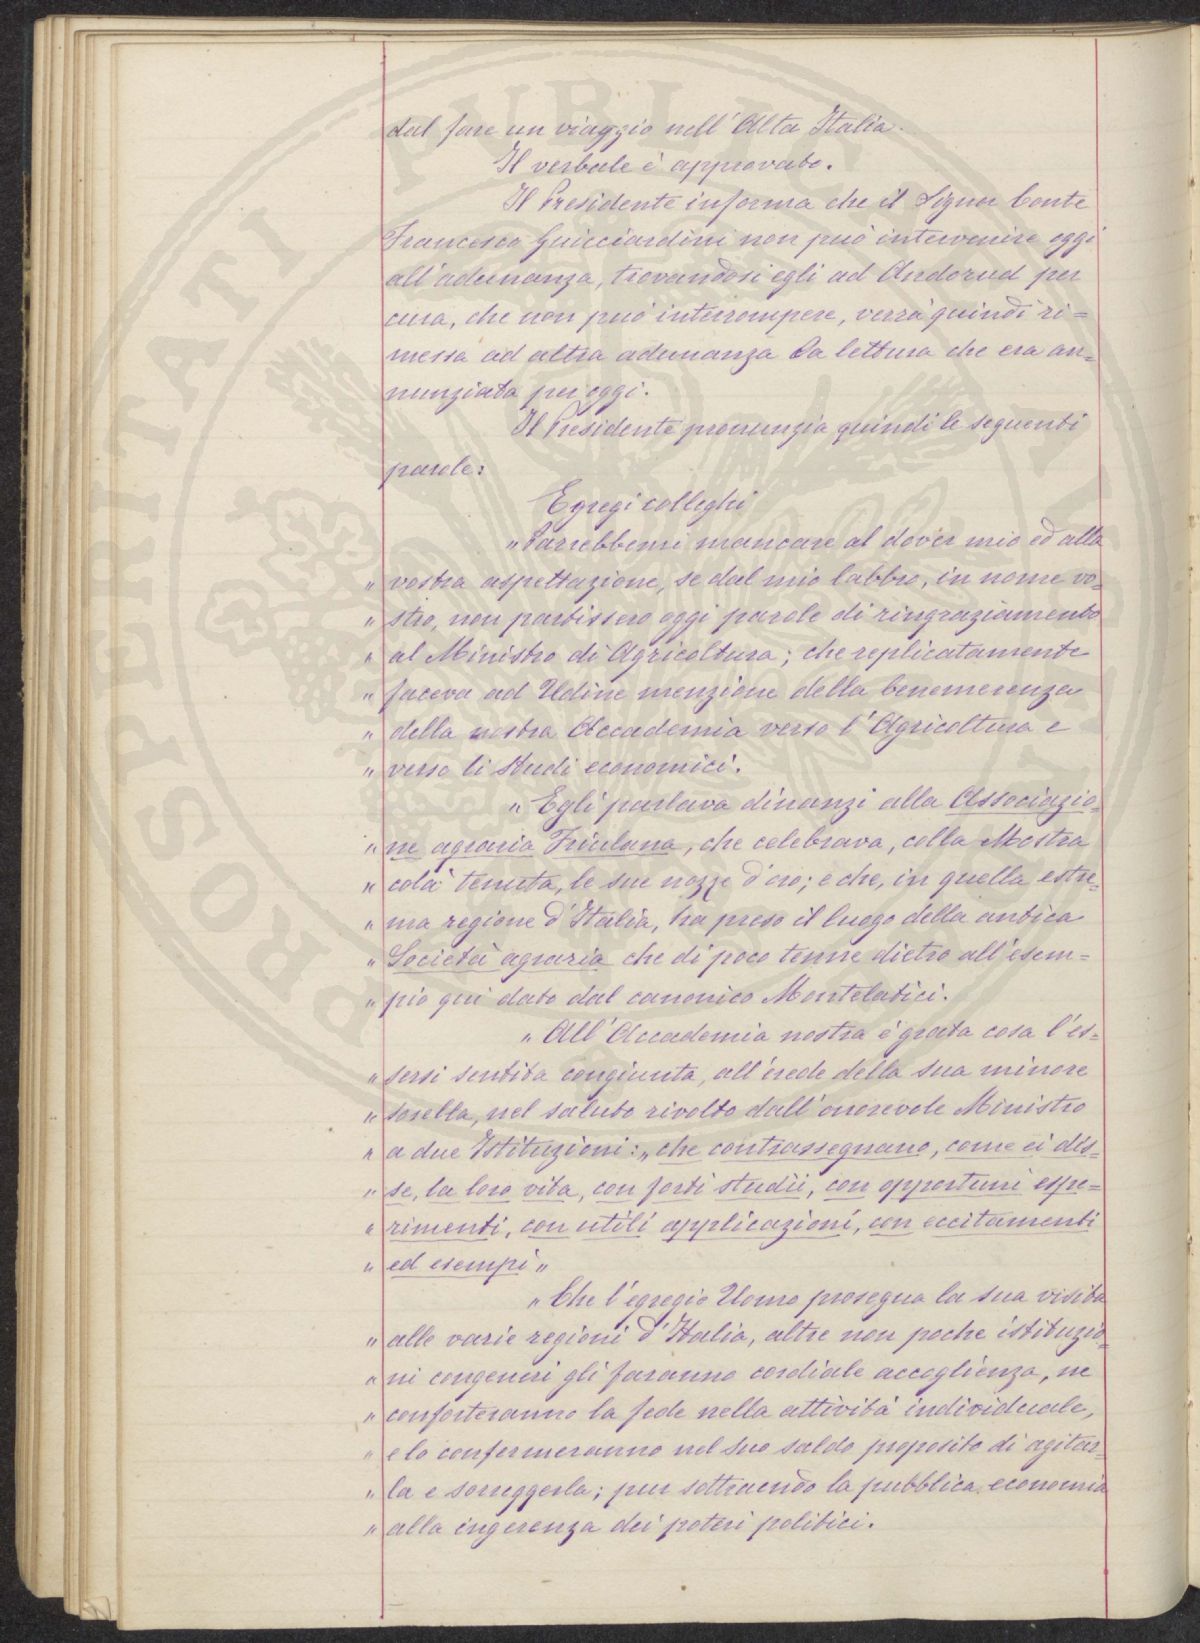 dal fare un viaggio nell'Alta Italia.
Il verbale è approvato.
Il Presidente informa che il Signor Conte
Francesco Guicciardini non può intervenire oggi
all'adunanza, trovandosi egli ad Andorud per
cura, che non può interrompere, verrà quindi ri=
messa ad altra adunanza la lettura che era an=
nunziata per oggi.
Il Presidente pronunzia quindi le seguenti
parole:
Egregi colleghi
"Parrebbemi mancare al dover mio ed alla
" vostra aspettazione, se dal mio labbro, in nome vo=
" stro, non partissero oggi parole di ringraziamento
" al Ministro di Agricoltura; che replicatamente
" faceva ad Udine menzione della benemerenza
" della nostra Accademia verso l'Agricoltura e
" verso li studi economici.
" Egli parlava dinanzi alla Associazio=
" ne agraria Friulana, che celebrava, colla Mostra
" colà tenuta, le sue nozze d'oro; e che, in quella estre=
" ma regione d'Italia, ha preso il luogo della antica
" Società agraria che di poco tenne dietro all'esem=
" pio qui dato dal canonico Montelatici.
" All'Accademia nostra è grata cosa l'es=
" sersi sentita congiunta, all'erede della sua minore
" sorella, nel saluto rivolto dall'onorevole Ministro
" a due Istituzioni: "che contrassegnano, come ei dis=
" se, la loro vita, con forti studii, con opportuni espe=
" rimenti, con utili applicazioni, con eccitamenti
" ed esempi"
" Che l'egregio Uomo prosegua la sua visita
" alle varie regioni d'Italia, altre non poche istituzio=
" ni congeneri gli faranno cordiale accoglienza, ne
" conforteranno la fede nella attività individuale,
" e lo confermeranno nel suo saldo proposito di agitar=
" la e sorreggerla; pur sottraendo la pubblica economia
" alla ingerenza dei poteri politici.
PROSPERITATI PUBLICAE